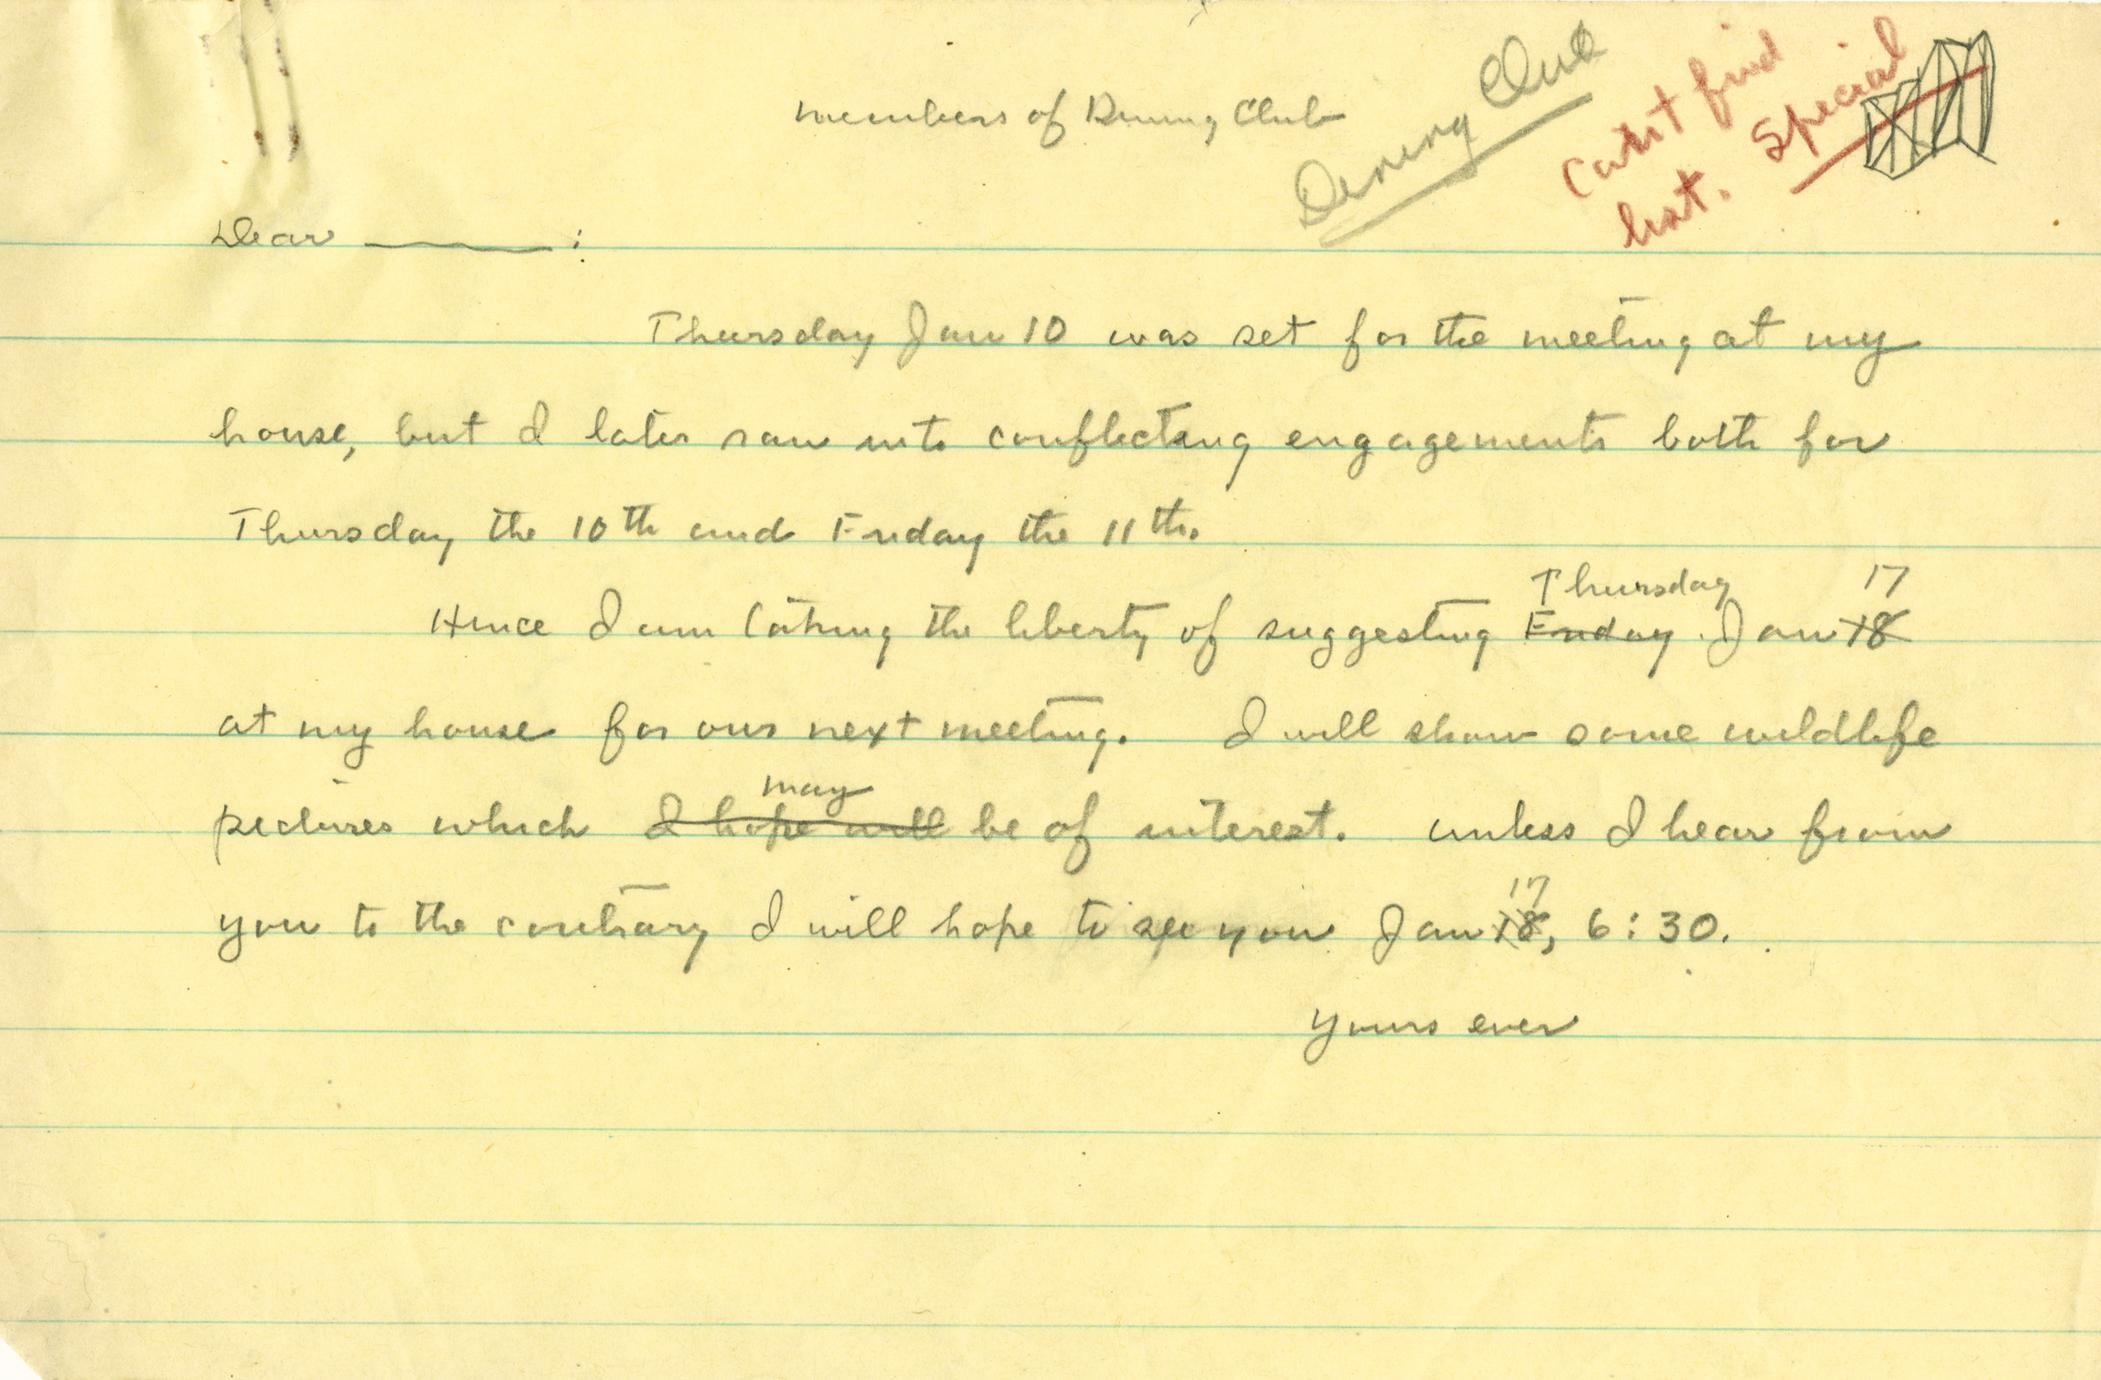 Members of Dining Club
Dining Club
Can't find
list. Special
Dear ______ :
Thursday Jan 10 was set for the meeting at my
house, but I later ran into conflicting engagements both for
Thursday the 10th and Friday the 11th.
Thursday 17
Hence I am taking the liberty of suggesting Friday Jan 18
at my house for our next meeting. I will show some wildlife
may
pictures which I hope will be of interest. Unless I hear from
17
you to the contrary I will hope to see you Jan 18, 6:30.
Yours ever